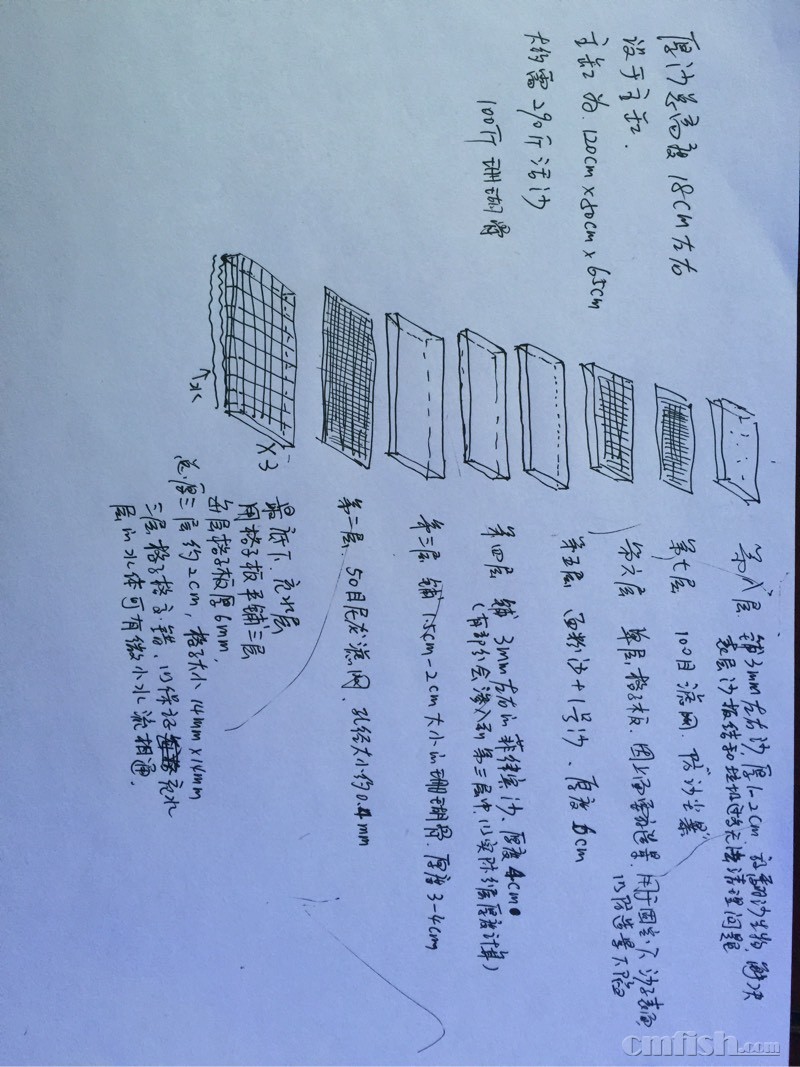 厚沙总高度 18cm左右
设于主缸.
主缸为.120cm x 80cm x 65cm
大约需 290斤活沙
100斤 珊瑚骨
第八层 铺3mm左右沙 厚1-2cm 设翻沙生物, 解决
表层沙板结和垃圾过多无法清理问题
第七层 100目滤网, 防沙尘暴
第六层 单层格子板. 因上面要放造景. 用于固定下沙表面
以防造景下陷
第五层 面粉沙+1号沙、厚度 6cm
第四层 铺 3mm左右的菲律宾沙、厚度4cm
(有部分会渗入到第三层中, 以实际铺层厚度计算)
第三层 铺 1.5cm-2cm 大小的珊瑚骨. 厚度 3-4cm
第二层. 50目尼龙滤网、孔径大小约0.4mm
最底下. 充水层
用格子板平铺三层
每层格子板厚6mm,
总厚三层 约2cm, 格子大小14mm x 14mm
三层格子格交错. 以保证充水
层的水体可有微小水流相通.
x3
水
cmfish.com